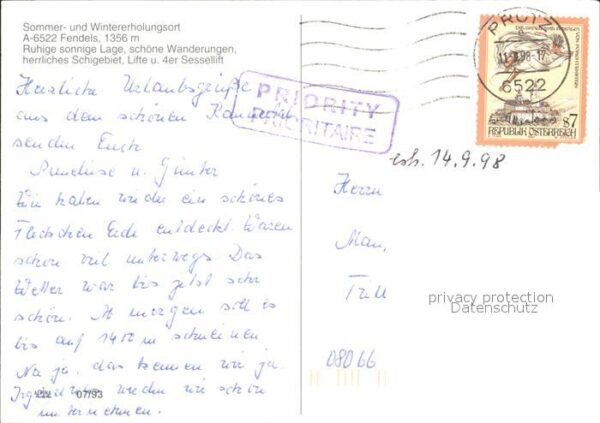 Sommer- und Wintererholungsort
A-6522 Fendels, 1356 m
Ruhige sonnige Lage, schöne Wanderungen,
herrliches Schigebiet, Lifte u. 4er Sessellift
Herzliche Urlaubsgrüße
aus dem schönen
senden Euch
u. Günter
Wir haben wieder ein schönes
Fleckchen Erde entdeckt. Waren
schon viel unterwegs. Das
Wetter war bis jetzt sehr
schön. Ab morgen soll es
bis auf 1400 m schneien
Na ja, das kennen wir ja.
Irgendetwas werden wir schon
unternehmen.
07/93
PRIORITY
PRIORITAIRE
PRUTZ
6522
S7
REPUBLIK ÖSTERREICH
14.9.98
Herrn
privacy protection
Datenschutz
08066